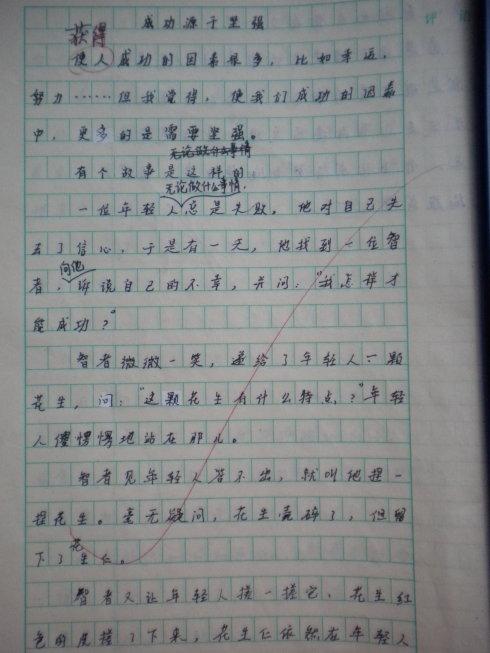 成功源于坚强
获得
使人成功的因素很多，比如幸运，
努力……但我觉得，使我们成功的因素
中，更多的是需要坚强。
无论做什么事情
有个故事是这样的，
无论做什么事情，
一位年轻人总是失败，他对自己失
去了信心，于是有一天，他找到一位智
向他
者，诉说自己的不幸，并问：“我怎样才
能成功？”
智者微微一笑，递给了年轻人一颗
花生，问：“这颗花生有什么特点？”年轻
人傻愣愣地站在那儿。
智者见年轻人答不出，就叫他捏一
捏花生。毫无疑问，花生壳碎了，但留
花
下了生仁。
智者又让年轻人搓一搓它，花生红
色的皮搓了下来，花生仁依然在年轻人